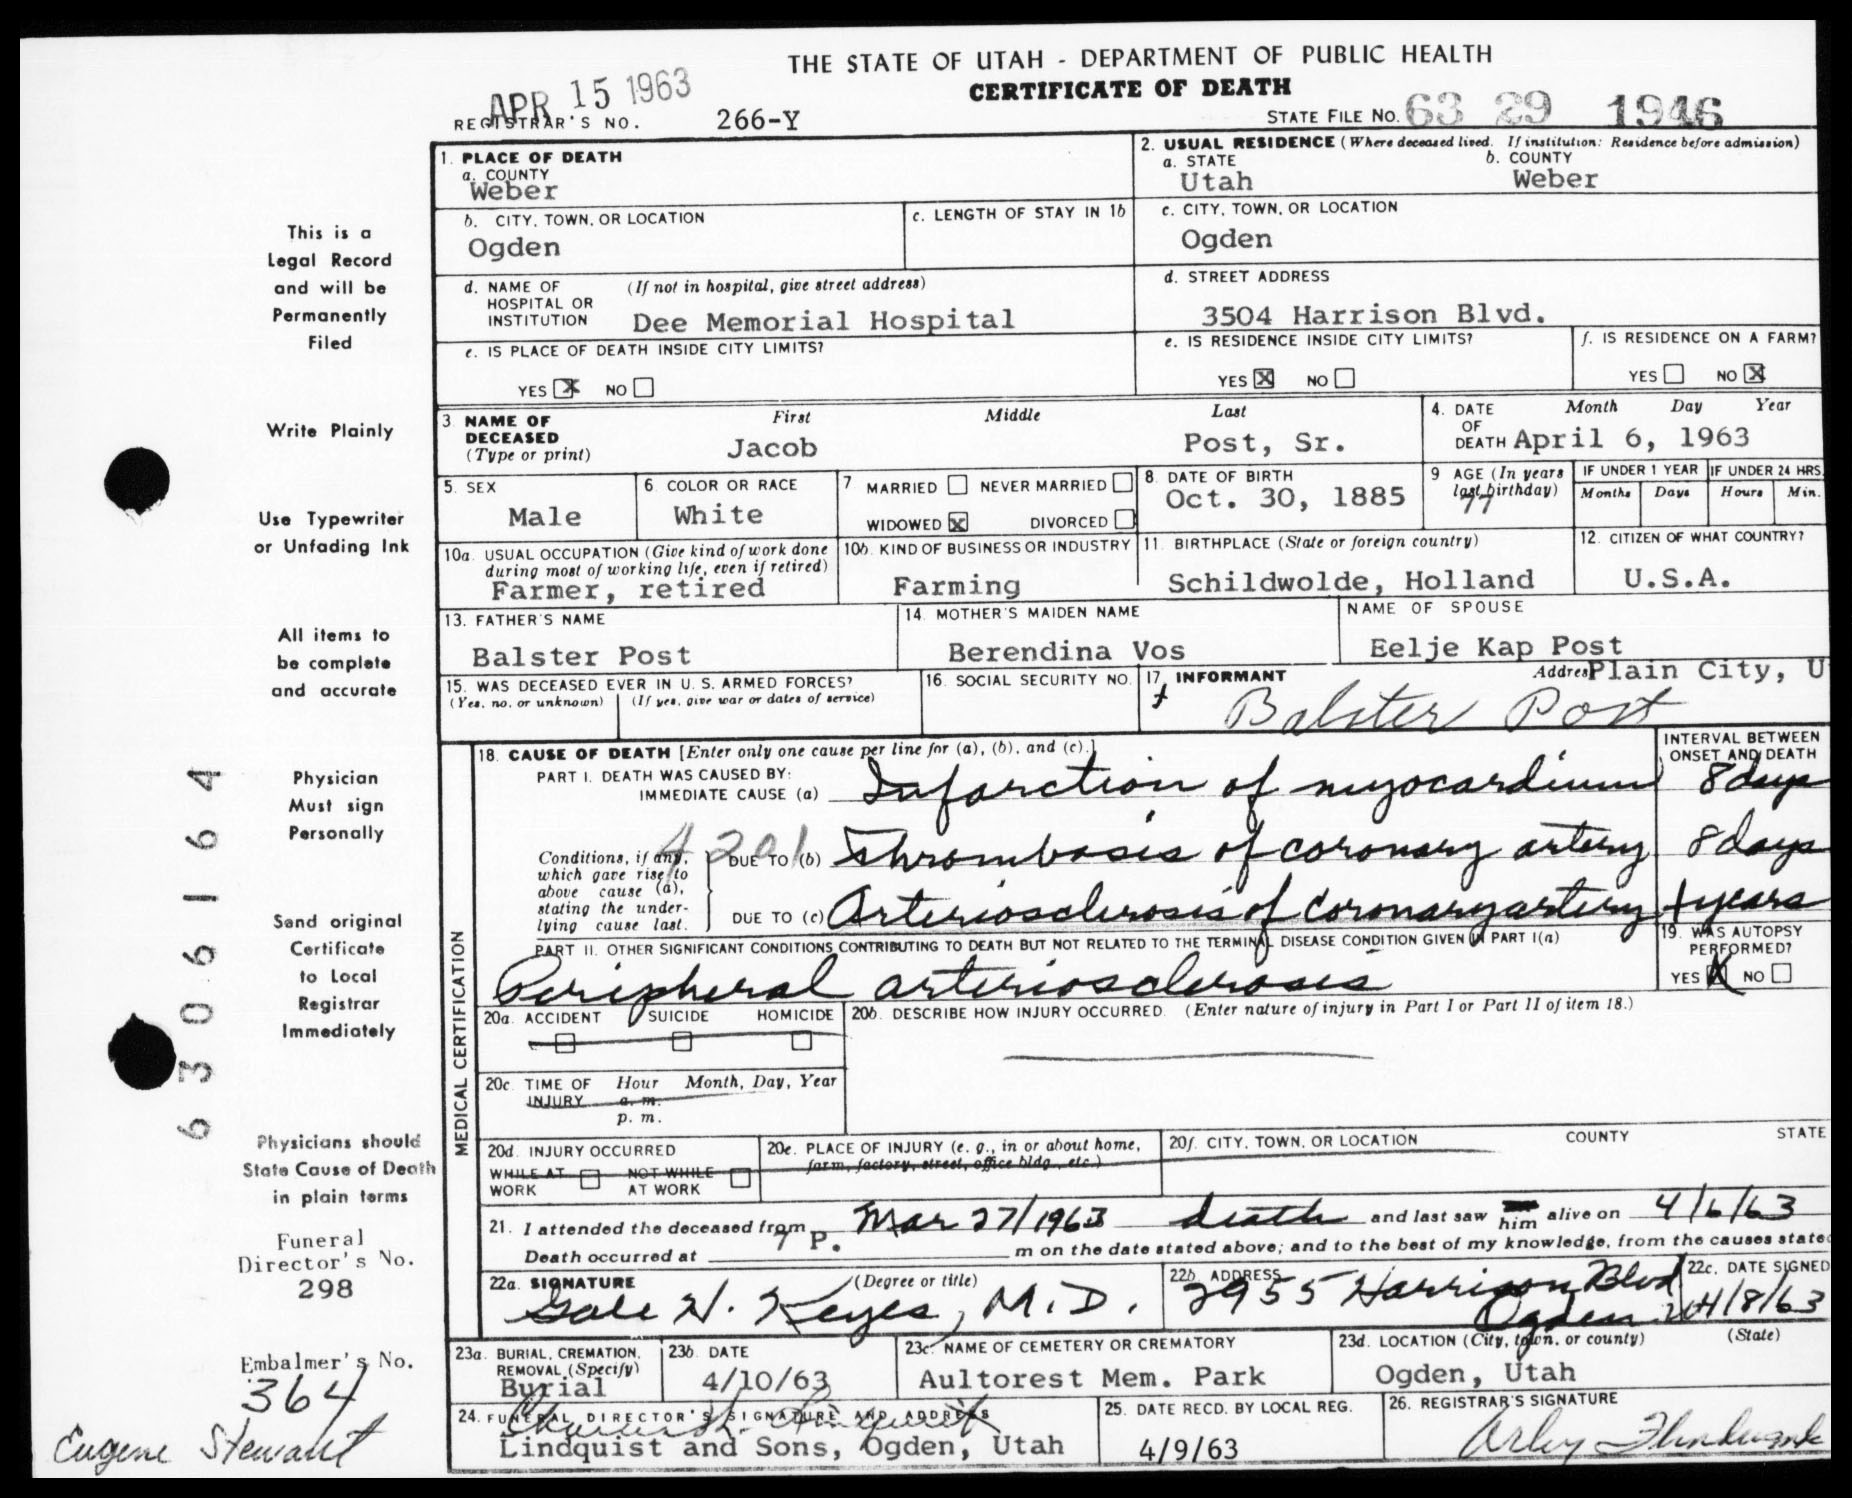 THE STATE OF UTAH - DEPARTMENT OF PUBLIC HEALTH
CERTIFICATE OF DEATH
APR 15 1963
REGISTRAR'S NO. 266-Y
STATE FILE NO. 63 29 1946
1. PLACE OF DEATH
a. COUNTY
Weber
2. USUAL RESIDENCE (Where deceased lived. If institution: Residence before admission)
a. STATE
Utah
b. COUNTY
Weber
b. CITY, TOWN, OR LOCATION
Ogden
c. LENGTH OF STAY IN 1b
c. CITY, TOWN, OR LOCATION
Ogden
d. NAME OF HOSPITAL OR INSTITUTION (If not in hospital, give street address)
Dee Memorial Hospital
d. STREET ADDRESS
3504 Harrison Blvd.
e. IS PLACE OF DEATH INSIDE CITY LIMITS?
YES X NO
e. IS RESIDENCE INSIDE CITY LIMITS?
YES X NO
f. IS RESIDENCE ON A FARM?
YES NO X
3 NAME OF DECEASED (Type or print)
First Middle Last
Jacob Post, Sr.
4. DATE OF DEATH Month Day Year
April 6, 1963
5. SEX
Male
6. COLOR OR RACE
White
7 MARRIED NEVER MARRIED
WIDOWED X DIVORCED
8. DATE OF BIRTH
Oct. 30, 1885
9 AGE (In years last birthday)
77
IF UNDER 1 YEAR
Months Days
IF UNDER 24 HRS.
Hours Min.
10a. USUAL OCCUPATION (Give kind of work done during most of working life, even if retired)
Farmer, retired
10b. KIND OF BUSINESS OR INDUSTRY
Farming
11. BIRTHPLACE (State or foreign country)
Schildwolde, Holland
12. CITIZEN OF WHAT COUNTRY?
U.S.A.
13. FATHER'S NAME
Balster Post
14. MOTHER'S MAIDEN NAME
Berendina Vos
NAME OF SPOUSE
Eelje Kap Post
15. WAS DECEASED EVER IN U. S. ARMED FORCES?
(Yes, no, or unknown) (If yes, give war or dates of service)
16. SOCIAL SECURITY NO.
17. INFORMANT Address Plain City, U
Balster Post
MEDICAL CERTIFICATION
18. CAUSE OF DEATH [Enter only one cause per line for (a), (b), and (c).]
INTERVAL BETWEEN ONSET AND DEATH
PART I. DEATH WAS CAUSED BY:
IMMEDIATE CAUSE (a) Infarction of myocardium 8 days
4201
Conditions, if any, which gave rise to above cause (a), stating the underlying cause last.
DUE TO (b) Thrombosis of coronary artery 8 days
DUE TO (c) Arteriosclerosis of coronary artery years
PART II. OTHER SIGNIFICANT CONDITIONS CONTRIBUTING TO DEATH BUT NOT RELATED TO THE TERMINAL DISEASE CONDITION GIVEN IN PART I(a)
Peripheral arteriosclerosis
19. WAS AUTOPSY PERFORMED?
YES X NO
20a. ACCIDENT SUICIDE HOMICIDE
20b. DESCRIBE HOW INJURY OCCURRED. (Enter nature of injury in Part I or Part II of item 18.)
20c. TIME OF INJURY Hour Month, Day, Year
a. m.
p. m.
20d. INJURY OCCURRED
WHILE AT WORK NOT WHILE AT WORK
20e. PLACE OF INJURY (e. g., in or about home, farm, factory, street, office bldg., etc.)
20f. CITY, TOWN, OR LOCATION COUNTY STATE
21. I attended the deceased from Mar 27/1963 death and last saw him alive on 4/6/63
Death occurred at 7 P. m on the date stated above; and to the best of my knowledge, from the causes state
22a. SIGNATURE (Degree or title)
Gale H. Keyes, M.D.
22b. ADDRESS
2955 Harrison Blvd
Ogden
22c. DATE SIGNED
4/8/63
23a. BURIAL, CREMATION, REMOVAL (Specify)
Burial
23b. DATE
4/10/63
23c. NAME OF CEMETERY OR CREMATORY
Aultorest Mem. Park
23d. LOCATION (City, town, or county) (State)
Ogden, Utah
24. FUNERAL DIRECTOR'S SIGNATURE AND ADDRESS
Lindquist and Sons, Ogden, Utah
25. DATE RECD. BY LOCAL REG.
4/9/63
26. REGISTRAR'S SIGNATURE
This is a
Legal Record
and will be
Permanently
Filed
Write Plainly
Use Typewriter
or Unfading Ink
All items to
be complete
and accurate
Physician
Must sign
Personally
Send original
Certificate
to Local
Registrar
Immediately
Physicians should
State Cause of Death
in plain terms
Funeral
Director's No.
298
Embalmer's No.
364
Eugene Stewart
63 06164